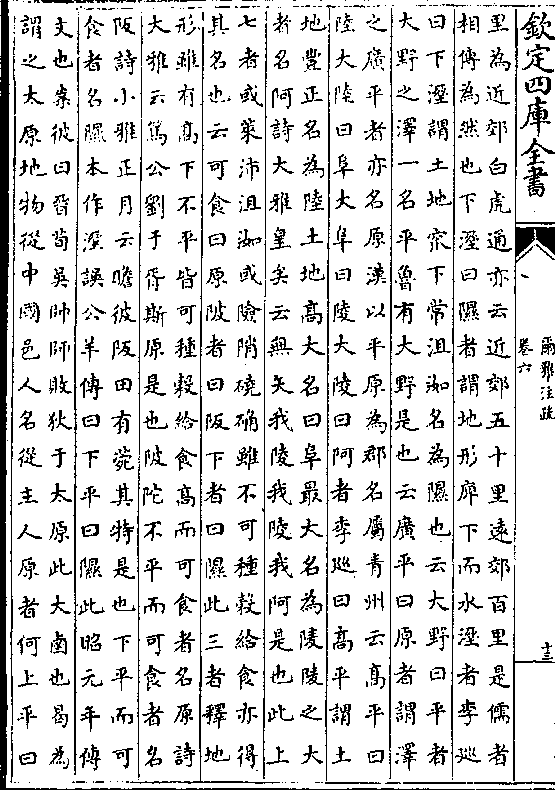 欽定四庫全書
爾雅注疏
卷六
十三
里為近郊白虎通亦云近郊五十里遠郊百里是儒者
相傳為然也下溼曰隰者謂地形庳下而水溼者李廵
曰下溼謂土地窊下常沮洳名為隰也云大野曰平者
大野之澤一名平魯有大野是也云廣平曰原者謂澤
之廣平者亦名原漢以平原為郡名屬青州云高平曰
陸大陸曰阜大阜曰陵大陵曰阿者李廵曰高平謂土
地豐正名為陸土地高大名曰阜最大名為陵陵之大
者名阿詩大雅皇矣云無矢我陵我陵我阿是也此上
七者或萊沛沮洳或險陗磽确雖不可種穀給食亦得
其名也云可食曰原陂者曰阪下者曰隰此三者釋地
形雖有高下不平皆可種穀給食高而可食者名原詩
大雅云篤公劉于胥斯原是也陂陀不平而可食者名
阪詩小雅正月云瞻彼阪田有菀其特是也下平而可
食者名隰本作溼誤公羊傳曰下平曰隰此昭元年傳
文也案彼曰晉荀吳帥師敗狄于太原此大鹵也曷為
謂之太原地物從中國邑人名從主人原者何上平曰